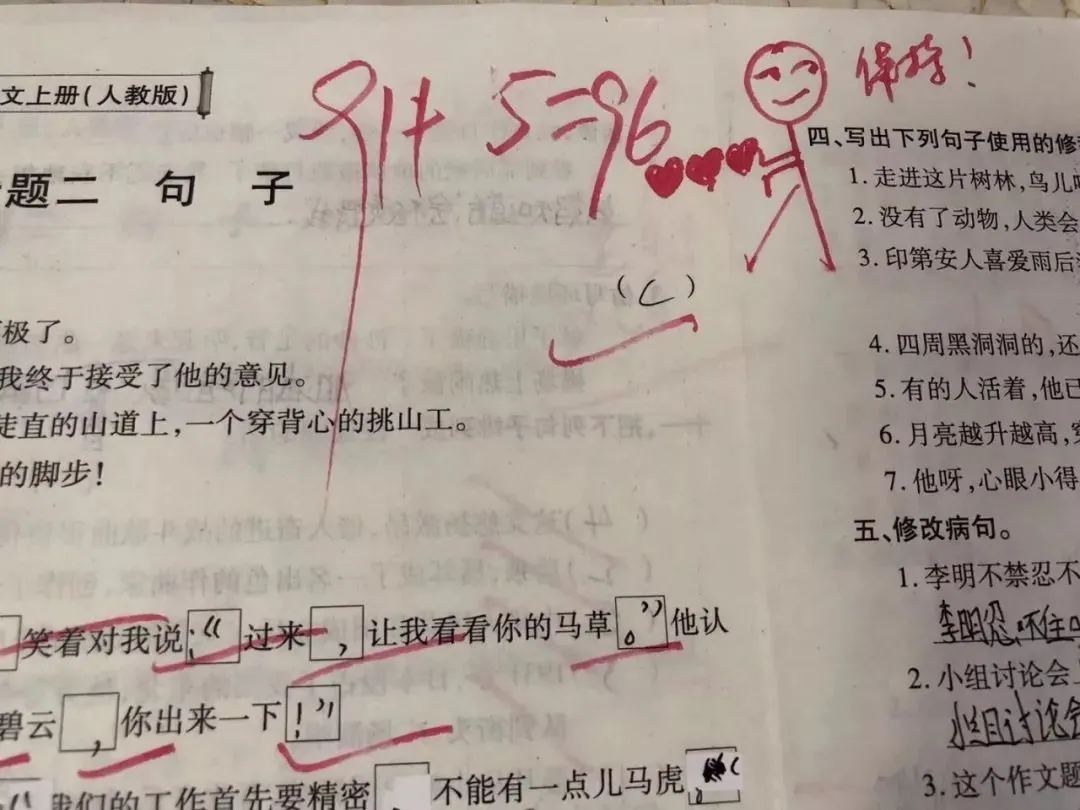 文上册(人教版)
91+5=96
保持!
题二 句子
四、写出下列句子使用的修
1. 走进这片树林,鸟儿
2. 没有了动物,人类会
3. 印第安人喜爱雨后
(C)
极了。
我终于接受了他的意见。
徒直的山道上,一个穿背心的挑山工。
的脚步!
4. 四周黑洞洞的,还
5. 有的人活着,他已
6. 月亮越升越高,穿
7. 他呀,心眼小得
五、修改病句。
1. 李明不禁忍不
李明忍不住
2. 小组讨论会
小组讨论会
3. 这个作文题
笑着对我说:“过来,让我看看你的马草。”他认
碧云,你出来一下!”
我们的工作首先要精密,不能有一点儿马虎